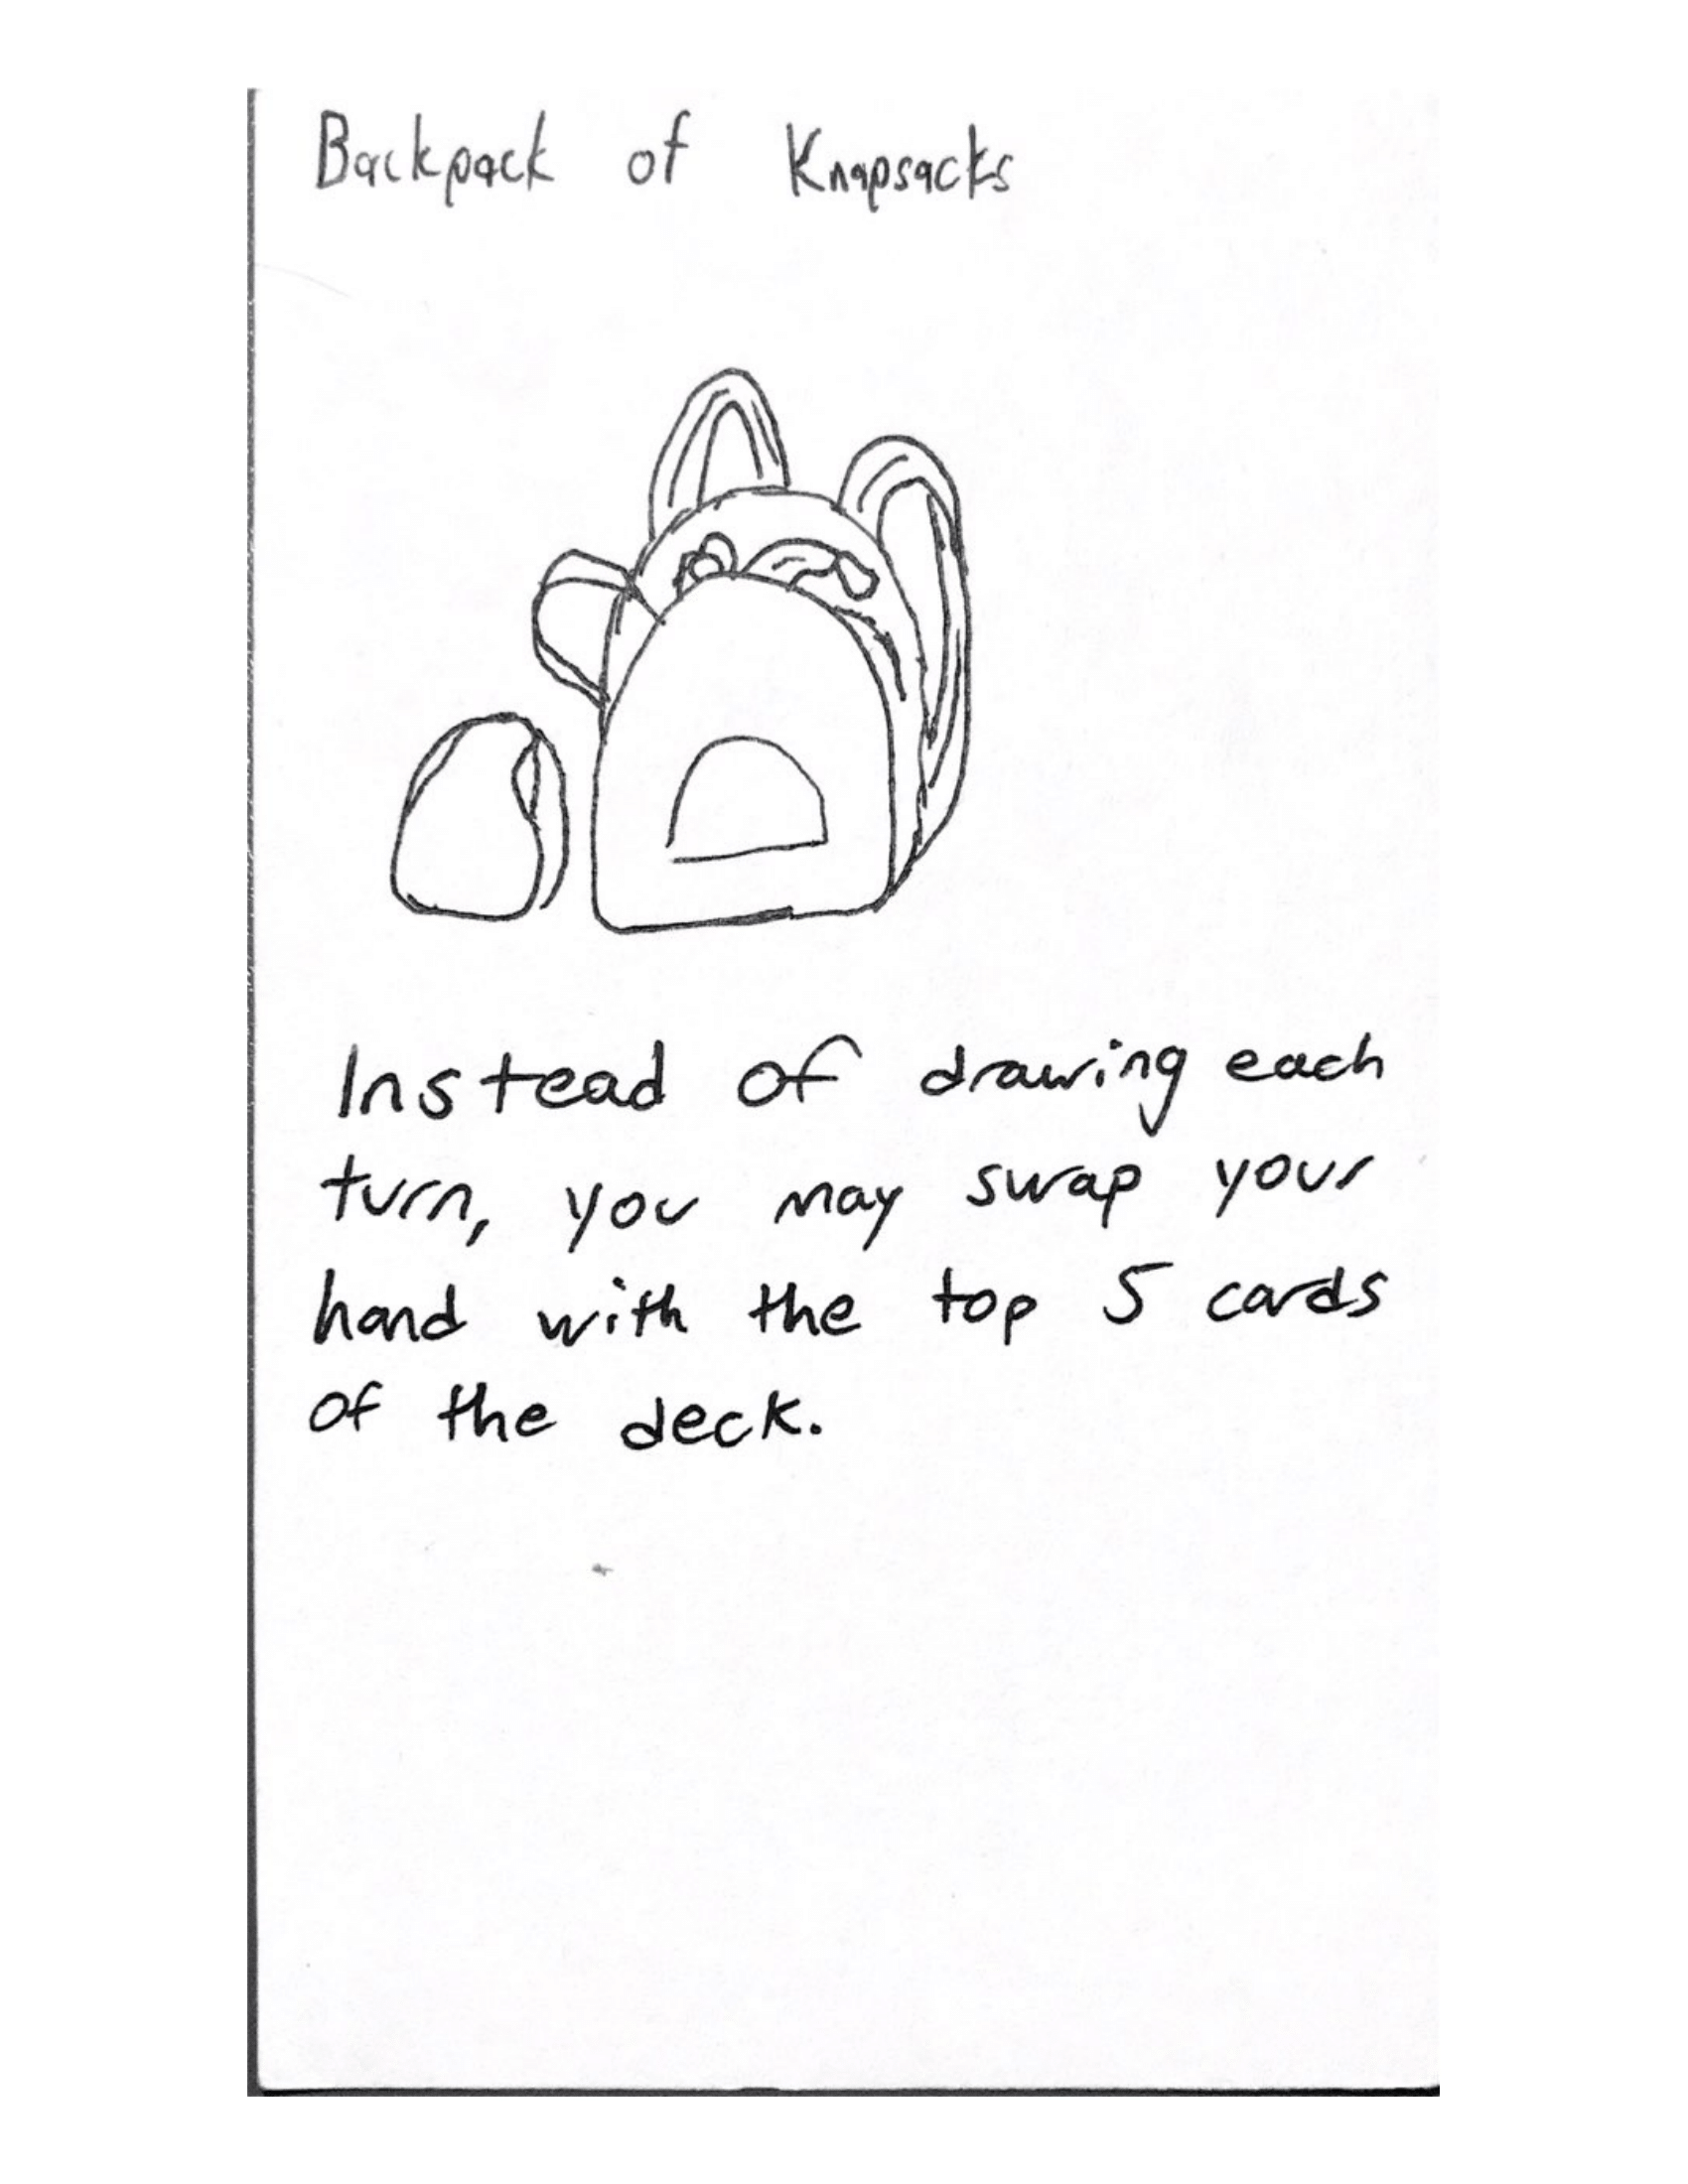 Backpack of Knapsacks
Instead of drawing each
turn, you may swap your
hand with the top 5 cards
of the deck.